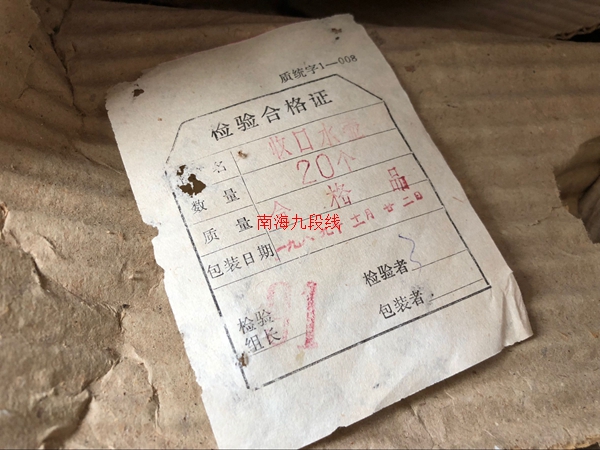 质统字1—008
检验合格证
名 收口水壶
数量 20个
质量 合格品
南海九段线
包装日期 一九八九年十一月廿二日
检验者 3
检验组长 01
包装者